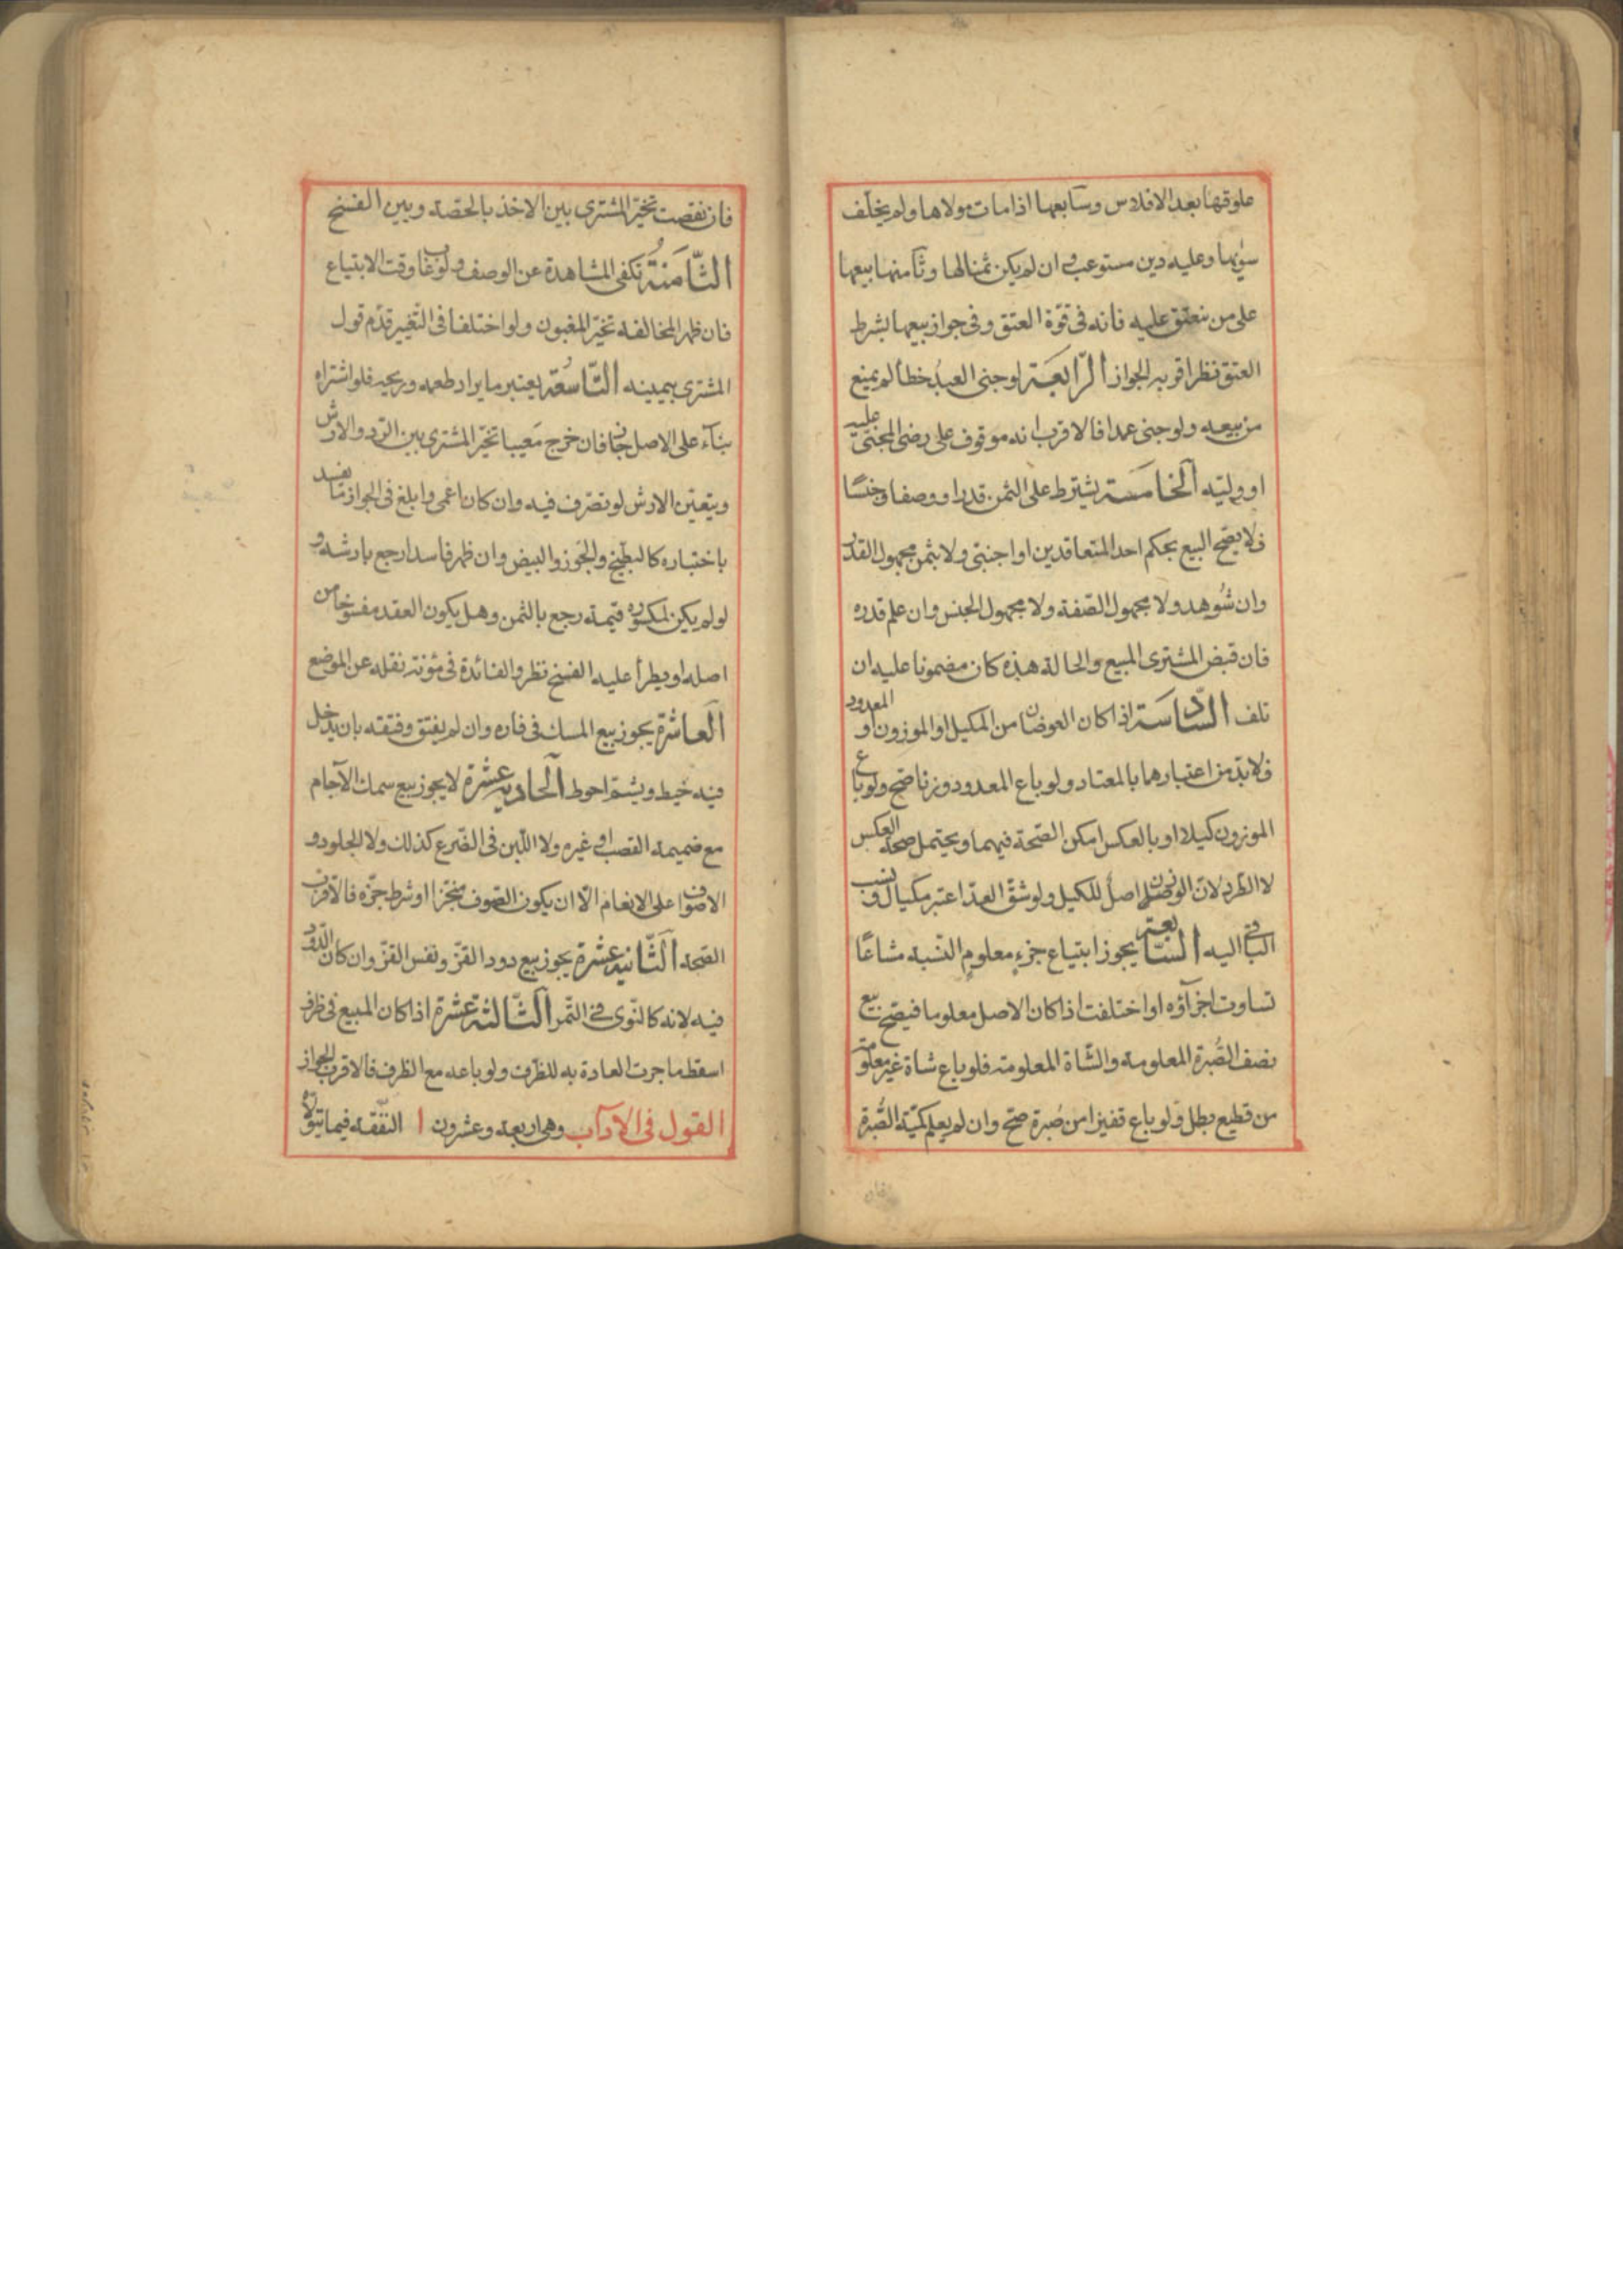 علوقها بعد الافلاس وسابعها اذا مات مولاها ولم يخلف
سويها وعليه دين مستوعب وان لم يكن ثمنا لها وثامنها بيعها
على من ينعتق عليه فانه في قوة العتق وفي جواز بيعها بشرط
العتق نظر اقربه الجواز الرابعة لو جنى العبد خطأ لم يمنع
من بيعه ولو جنى عمدا فالاقرب انه موقوف على رضى المجنى عليه
او وليّه الخامسة يشترط علم الثمن قدرا ووصفا وجنسًا
فلا يصح البيع بحكم احد المتعاقدين او اجنبي ولا بثمن مجهول القدر
وان شوهد ولا مجهول الصفة ولا مجهول الجنس وان علم قدره
فان قبض المشترى المبيع والحالة هذه كان مضمونا عليه ان
تلف السّادسة اذا كان العوضان من المكيل او الموزون او المعدود
فلا بدّ من اعتبارهما بالمعتاد ولو باع المعدود وزنا صحّ ولو باع
الموزون كيلا او بالعكس امكن الصّحة فيهما ويحتمل صحة العكس
لا الطرد لانّ الوزن اصلٌ للكيل ولو شقّ العدّ اعتبر مكيال ونسب
الباقى اليه السّابعة يجوز ابتياع جزءٍ معلومٍ النسبه مشاعًا
تساوت اجزآؤه او اختلفت اذا كان الاصل معلوما فيصح بيع
نصف الصُبرة المعلومة والشّاة المعلومة فلو باع شاة غير معلومة
من قطيع بطل ولو باع قفيزا من صُبرة صحّ وان لم يعلم كميّة الصُّبرة
فان
فان نقصت تخيّر المشترى بين الاخذ بالحصّة وبين الفسخ
الثّامنةُ تكفى المشاهدة عن الوصف ولو غابا وقت الابتياع
فان ظهر المخالفه تخيّر المغبون ولو اختلفا في التّغيير قدّم قول
المشترى بيمينه التّاسعة يعتبر ما يراد طعمه وريحه فلو اشتراه
بنآء على الاصل جاز فان خرج مَعيبا تخيّر المشترى بين الردّ والارش
ويتعيّن الارش لو تصّرف فيه وان كان اعمى وابلغ في الجواز ما يفسد
باختباره كالبطّيخ والجَوز والبيض وان ظهر فاسدا رجع بارشه و
لو لم يكن لمكسوره قيمة رجع بالثمن وهل يكون العقد مفسوخا من
اصله او يطرأ عليه الفسخ نظر والفائدة في مؤنة نقله عن الموضع
العاشرة يجوز بيع المسك في فاره وان لم يفتق وفتقه بان يدخل
فيه خيط ويشمّ احوط الحادية عشرة لا يجوز بيع سمك الآجام
مع ضميمة القصب او غيره ولا اللّبن في الضّرع كذلك ولا الجلود و
الاصواف على الانعام الّا ان يكون الصّوف منجّزا او شرط جزّه فالاقرب
الصّحة الثّانية عشرة يجوز بيع دود القزّ ونفس القزّ وان كان الدّود
فيه لانه كالنّوى في التّمر الثّالثة عشرة اذا كان المبيع في ظرف
اسقط ما جرت العادة به للظّرف ولو باعه مع الظرف فالاقرب الجواز
القول في الآداب وهى اربعة وعشرون ا التفقه فيما يتولاه